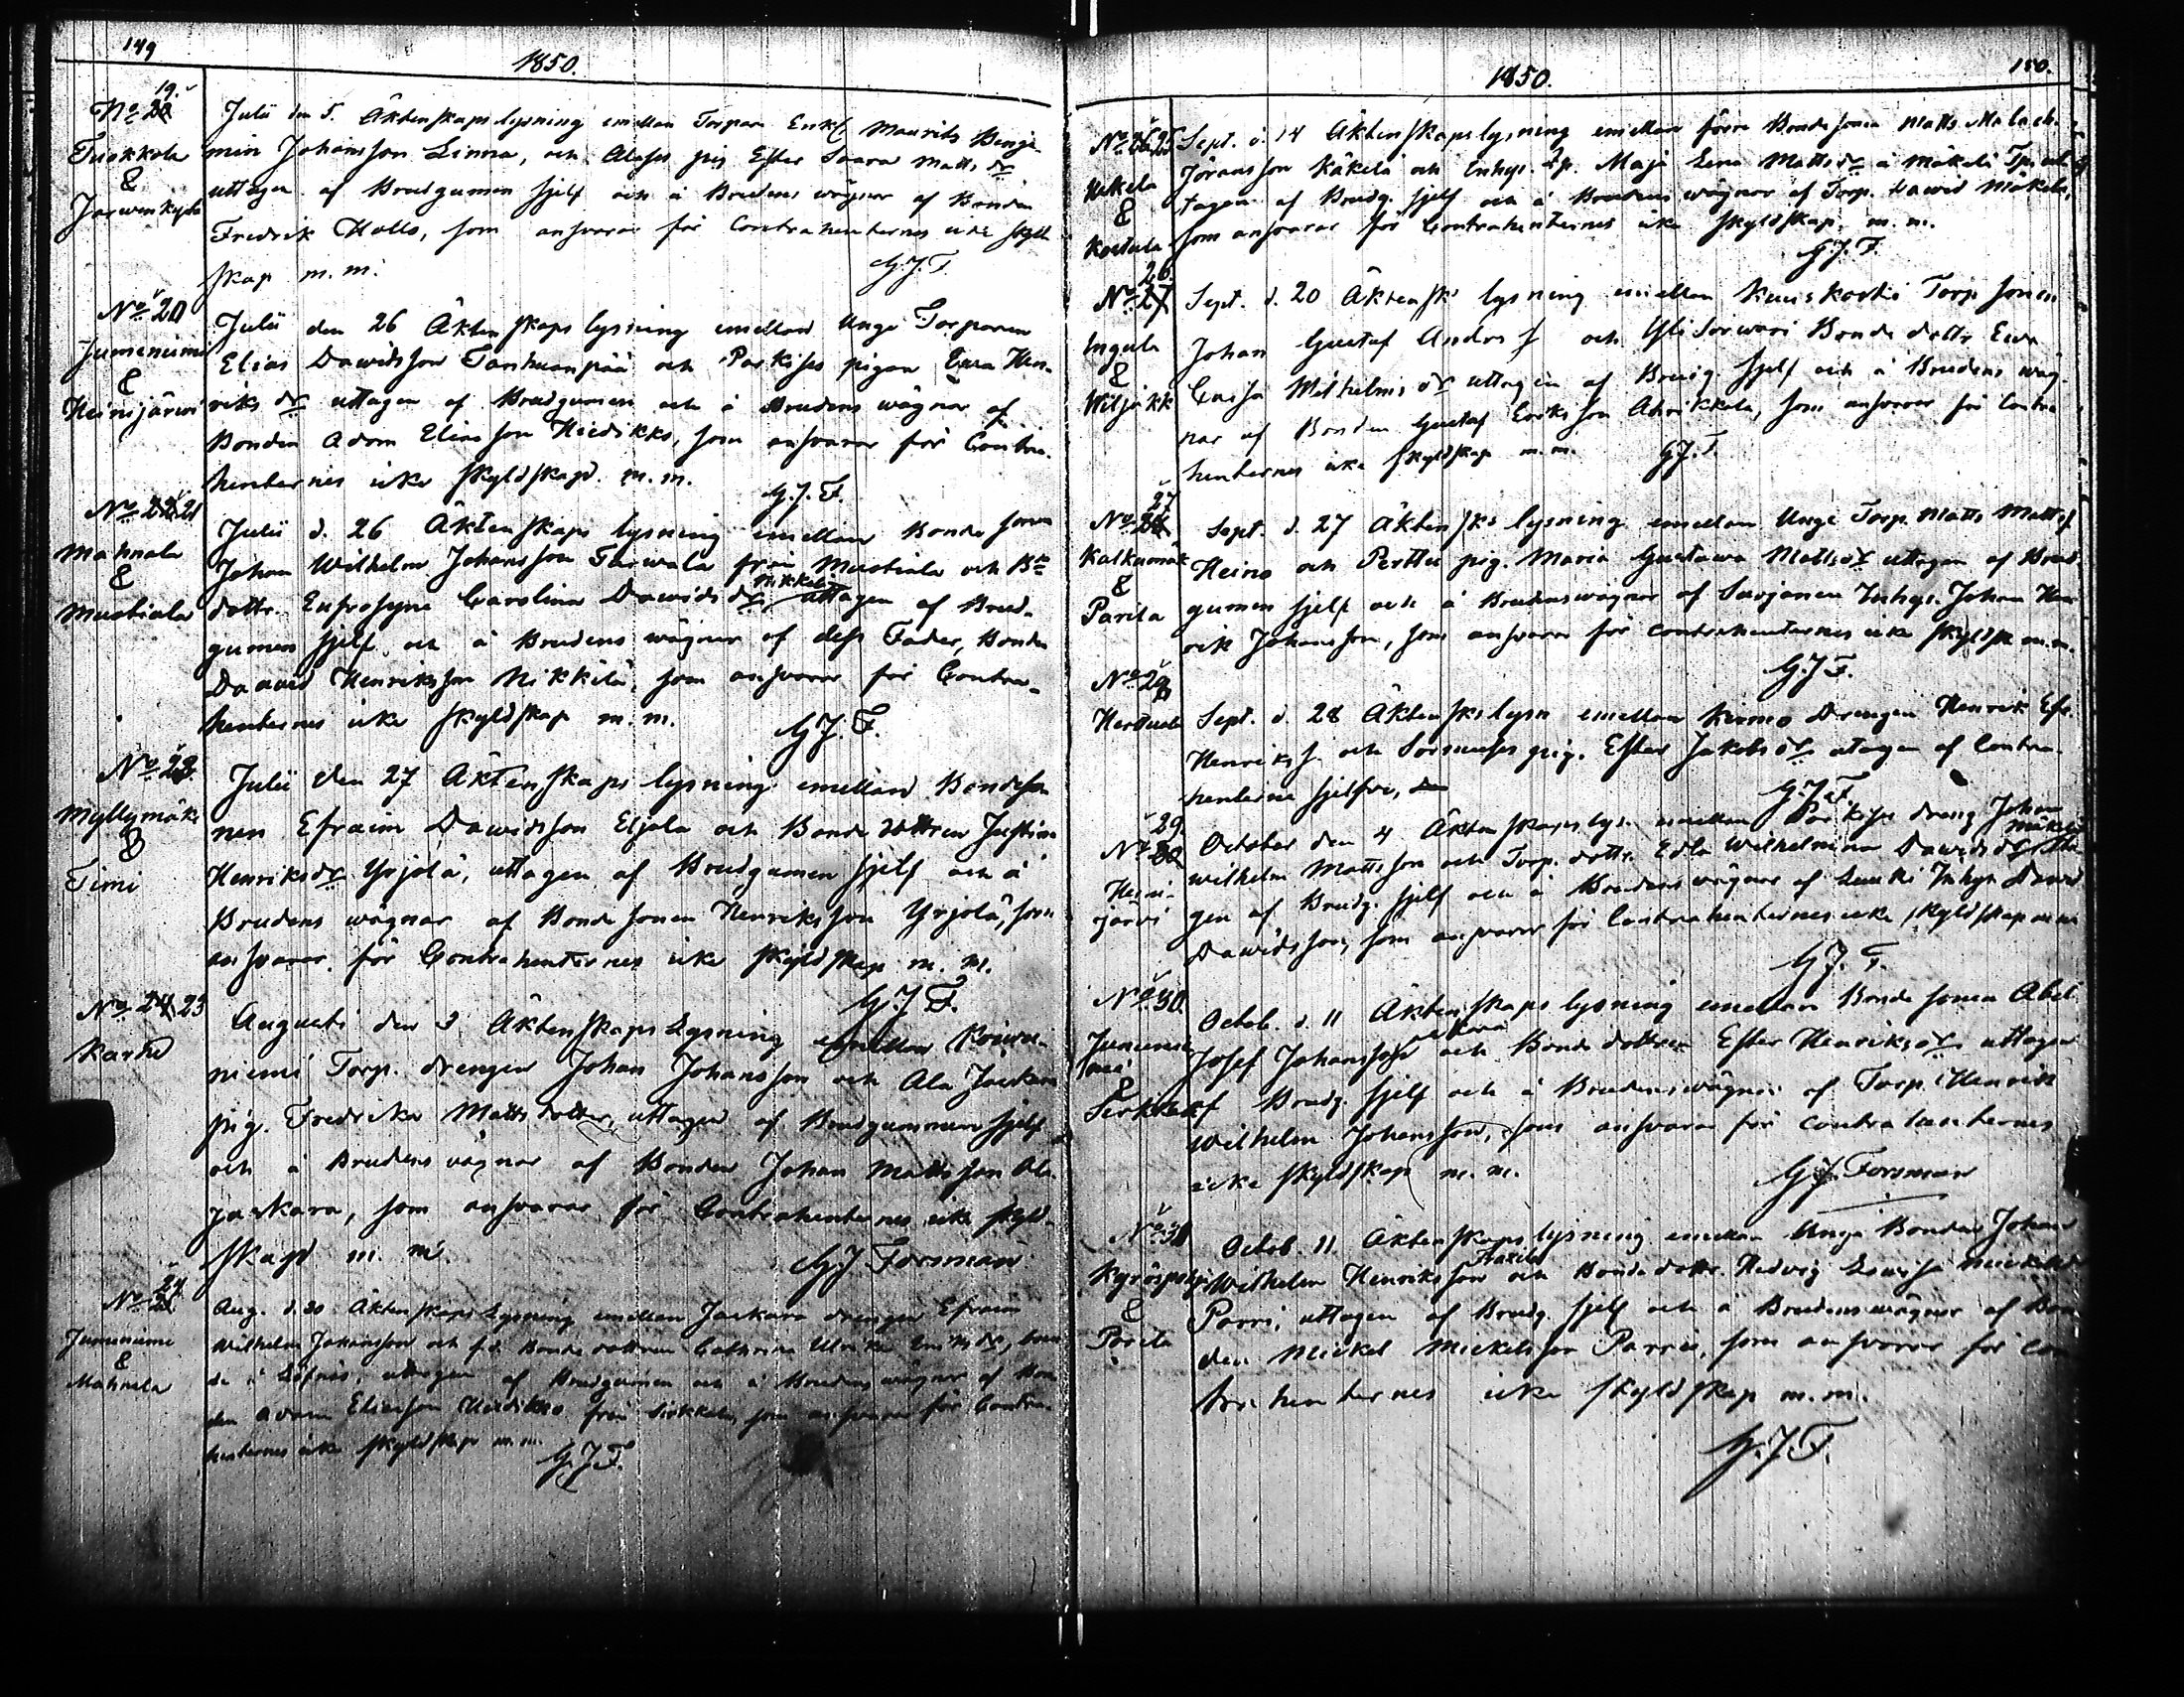 149
1850.
19.
No 20
Tuokkola
&
Jarwenkylä
Julii den 5. Äktenskapslysning emellan Torpare Enkl. Maurits Benja-
min Johansson Linna, och Alases pig Ester Soara Matts dr
uttagen af Brudgummen sjelf och å Brudens wägnar af Bonden
Fredrik Mollo, som answarar för Contrahenternes icke skyld
skap m.m. G.J.F.
No 20
Jumeniemi
&
Heinijärwi
Julii den 26 Äktenskaps lysning emellan Unge Torparen
Elias Dawidsson Tanhuanpää och Parkises pigan Ewa Hen-
riks dr uttagen af Brudgumen och å Brudens wägnar af
Bonden Adam Eliasson Hiedikko, som answarar för Contra-
henternes icke skyldskap. m.m. G.J.F.
No 22 21
Mahnala
&
Mustiala
Julii d. 26 Äktenskaps lysning emellan Bonde sonen
Johan Wilhelm Johansson Tarwala från Mustiala och Be
dottr. Eufrosyne Carolina Dawids dr Nikkilä uttagen af Brud-
gumen sjelf och å Brudens wägnar af dess Fader, Bonden
David Henriksson Nikkilä, som answarar för Contra-
henternes icke skyldskap m.m. G.J.F.
No 22
Myllymäki
&
Timi
Julii den 27 Äktenskaps lysning emellan Bondeso
nen Efraim Dawidsson Eljala och Bonde dottren Justina
Henriksdr Yrjölä, uttagen af Brudgumen sjelf och å
Brudens wägnar af Bonde sonen Henriksson Yrjölä, som
answarar för Contrahenternes icke skyldskap m.m.
G.J.F.
No 24 23
Karhe
Augusti den 3 Äktenskaps Lysning emellan Kouru-
niemi Torp. drengen Johan Johansson och Ala Jaskara
pig. Fredrika Matts dotter, uttagen af Brudgummen sjelf
och å Brudens wägnar af Bonden Johan Mattsson Ala
jaskara, som answarar för Contrahenternes icke skyld-
skap m.m. GJ Forsman
24
No 25
Jumeniemi
&
Mahnala
Aug. d. 30 Äktenskaps Lysning emellan Jaskara drengen Efraim
Wilhelm Johansson och f.d. Bonde dottren Cathrina Ulrika Eriks dr,
uttagen af Brudgumen och å Brudens wägnar af Bon
den Adam Eliasson Hiedikko från Sirkkala, som answarar för Contra-
henternes icke skyldskap m.m. G.J.F.
150.
1850.
No 26 25
&
Kostula
Sept. d. 14 Äktenskapslysning emellan förre Bonde sonen Matts Malach.
Göransson Käkelä och Inhys. Maja Lena Matts dr å Mäkelä
tagen af Brudg. sjelf och å Brudens wägnar af Torp. Dawid Mäkelä,
som answarar för Contrahenternes icke skyldskap. m.m.
G.J.F.
26
No 27
Ingula
&
Wiljakk
Sept. d. 20 Äktensk. lysning emellan Kuuskoski Torp sonen
Johan Gustaf Anders s. och Yli Sorwari Bonde dottr Ewa
Cajsa Wilhelms dr uttagen af Brudg sjelf och å Brudens wäg
nar af Bonden Gustaf Eriksson Ahrikkala, som answarar för Contra
henternes icke skyldskap m.m. G.J.F.
27
No 28
Kalkunmäk
&
Parila
Sept. d. 27 Äktensks lysning emellan Unge Torp. Matts Matts s.
Heino och Perttu pig. Maria Gustawa Matts dr uttagen af Brud
gumen sjelf och å Brudens wägnar af Sarjanen Inhys. Johan Hen
rik Johansson, som answarar för contrahenternes icke skyldsk m.m.
G.J.F.
No 28
Hertuala
Sept. d. 28 Äktenskslysn emellan Kirmo Drengen Henrik Efr.
Henriks s. och Sormuses pig. Ester Jakobs dr utagen af Contra-
henterne sjelfve,
G.J.F.
29.
No 30
Heini-
järvi
October den 4 Äktenskapslys. emellan Porkises dreng Johan
Wilhelm Mattsson och Torp. dottr. Edla Wilhelmina Dawids dr Mäkelä utta
gen af Brudg. sjelf och å Brudens wägnar af Inhys David
Dawidsson, som answarar för Contrahenternes icke skyldskap m m
G.J.F.
No 30.
Jumeniemi
&
Sirkkala
Octob. d. 11 Äktenskaps lysning emellan Bonde sonen Abel
Josef Johansson och Bonde dottren Ester Henriks dr uttagen
af Brudg. sjelf och å Brudens wägnar af Torp. Henrik
Wilhelm Johansson, som answarar för contrahenternes
icke skyldskap m.m. GJ. Forsman
No 31
Kyröspohja
&
Parila
Octob. 11. Äktenskaps lysning emellan Unge Bonden Johan
Wilhelm Henriksson och Bonde dottr. Hedvig Lovisa Mickelsd
Parri, uttagen af Brudg. sjelf och å Brudens wägnar af Bon
den Mickel Mickelsson Parri, som answarar för Con
trahenternes icke skyldskap m.m.
G.J.F.